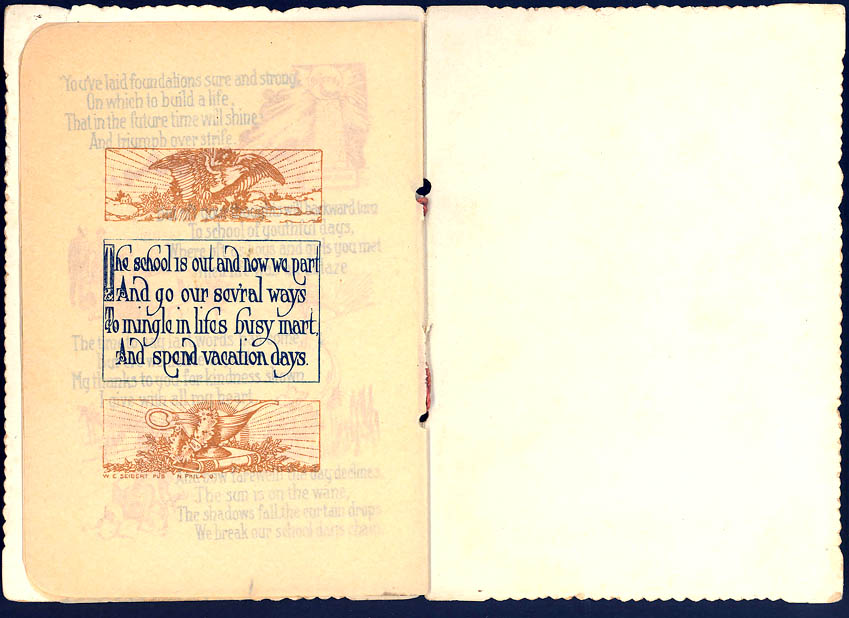 You've laid foundations sure and strong,
On which to build a life,
That in the future time will shine
And triumph over strife.
will backward turn
To school of youthful days,
Where and girls you met
The school is out and now we part
And go our sev'ral ways
To mingle in life's busy mart,
And spend vacation days.
The time words
My thanks to you for kindness shown
with all my heart
W E SEIBERT PUB N PHILA O.
And now farewell the day declines,
The sun is on the wane,
The shadows fall the curtain drops
We break our school days chain.